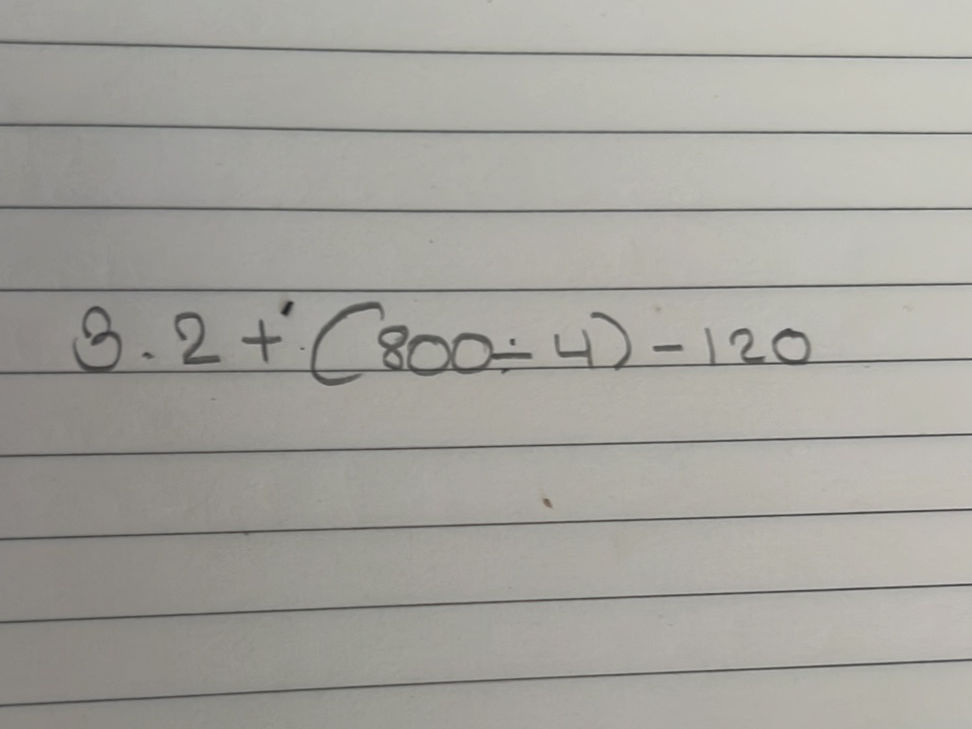 3.2 + (800÷4) - 120